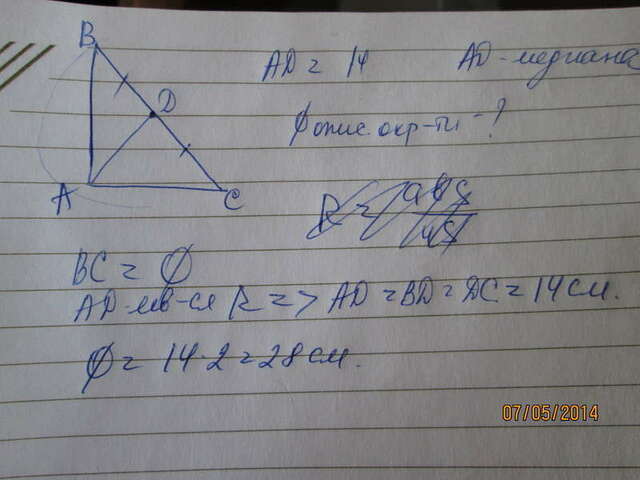 B
D
A
C
AD = 14
AD - медиана
∅ опис. окр-ти - ?
BC = ∅
AD - яв-ся R => AD = BD = DC = 14 см.
∅ = 14 · 2 = 28 см.
07/05/2014